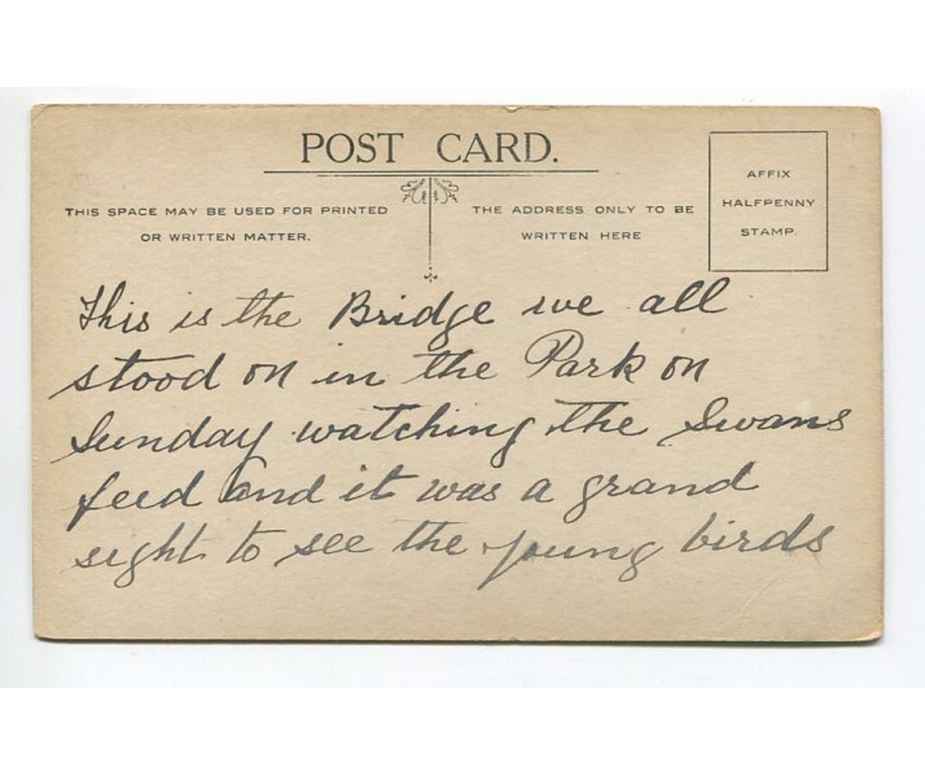 POST CARD.
THIS SPACE MAY BE USED FOR PRINTED
OR WRITTEN MATTER.
THE ADDRESS ONLY TO BE
WRITTEN HERE
AFFIX
HALFPENNY
STAMP.
This is the Bridge we all
stood on in the Park on
Sunday watching the Swans
feed and it was a grand
sight to see the young birds